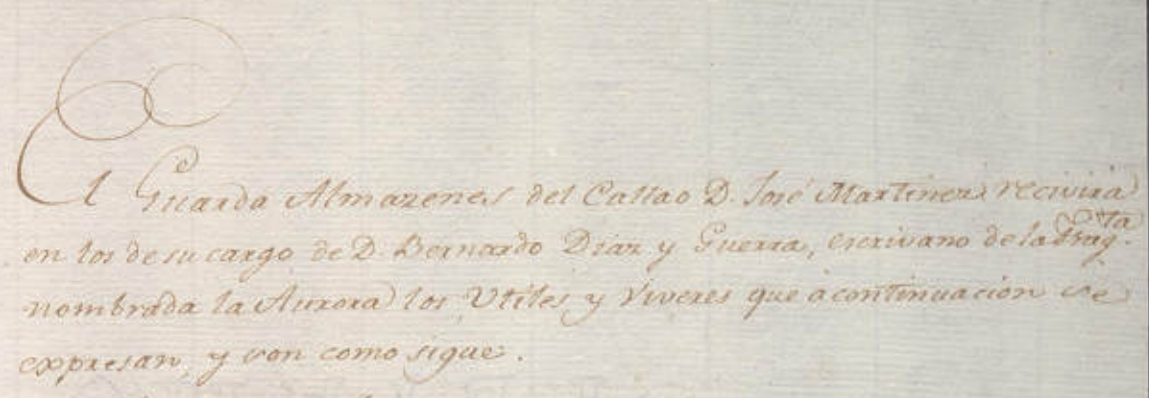 El Guarda Almazenes del Callao D. José Martinez recivirá
en los de su cargo de D. Bernardo Diaz y Guerra, escrivano de la Frag.ta
nombrada la Aurora los Utiles y Viveres que a continuacion se
expresan, y son como sigue.